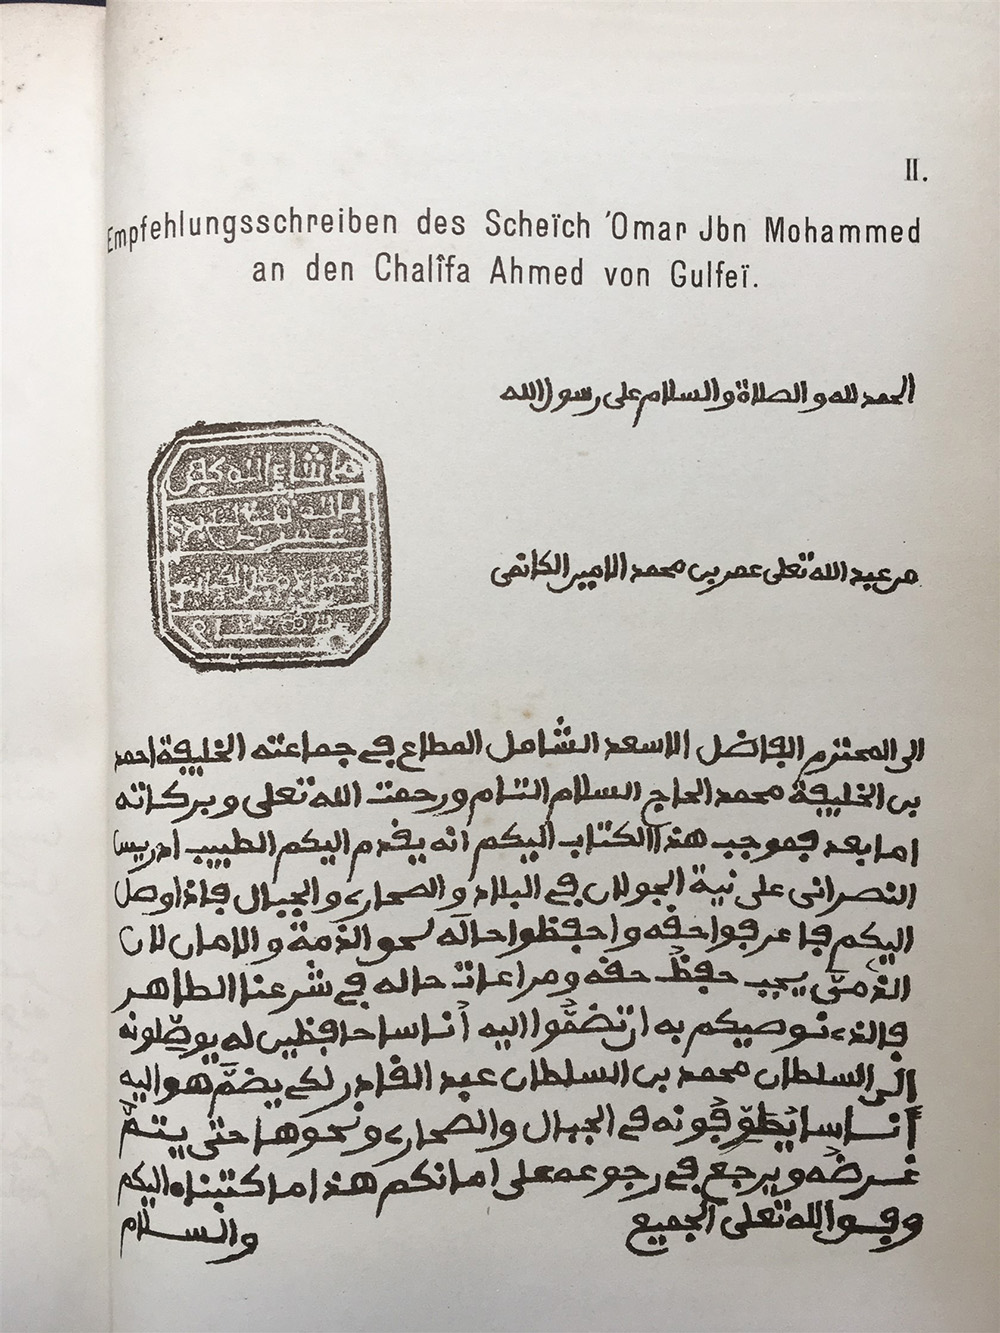 II.
Empfehlungsschreiben des Scheïch 'Omar Jbn Mohammed
an den Chalîfa Ahmed von Gulfeï.
الحمد لله والصلاة والسلام على رسول الله
ما شاء الله
من عبد الله تعلى عمر بن محمد الامين الكانمى
الى المحترم الفاضل الاسعد الشامل المطاع في جماعته الخليفة احمد
بن الخليفة محمد الحاج السلام التام ورحمت الله تعلى وبركاته
اما بعد فموجب هذا الكتاب اليكم انه يقدم اليكم الطبيب ادريس
النصرانى على نية الجولان في البلاد والصحارى والجبال فاذا وصل
اليكم فاعرفوا حقه واحفظوا حاله نحو الذمة والامان لان
الذمّى يجب حفظ حقه ومراعات حاله في شرعنا الطاهر
فالذى نوصيكم به ان تضمّوا اليه أناسا حافظين له يوصّلونه
الى السلطان محمد بن السلطان عبد القادر لكي يضمّ هو اليه
أناسا يُطوّفونه في الجبال والصحارى ونحوها حتى يتمّ
غرضه ويرجع في رجوعه على امانكم هذا ما كتبناه اليكم
وفق الله تعلى الجميع والسلام